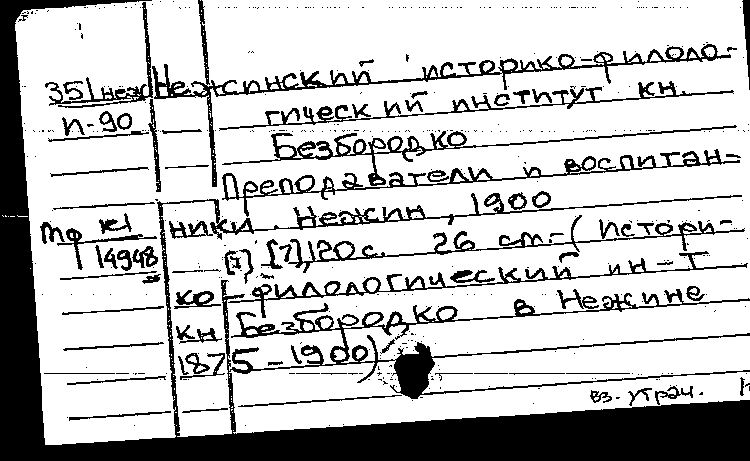 Нежинский историко-филоло-
351 неж
гический институт кн.
П-90
Безбородко
Преподаватели и воспитан-
ники. Нежин, 1900
Мф К1
14948
[7], 120 с. 26 см.-(Истори-
ко-филологический ин-т
кн Безбородко в Нежине
1875-1900)
вз. утрач.